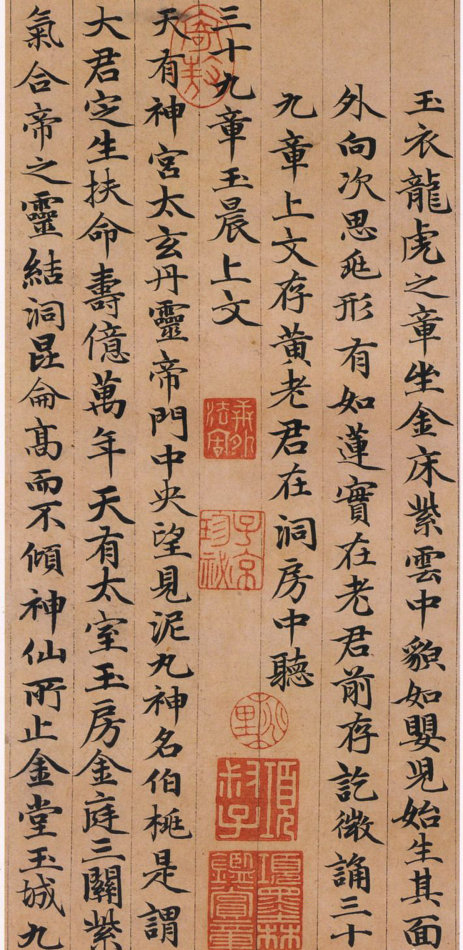 玉衣龍虎之章坐金床紫雲中貌如嬰兒始生其面
外向次思兆形有如蓮實在老君前存訖微誦三十
九章上文存黃老君在洞房中聽
三十九章玉晨上文
天有神宮太玄丹靈帝門中央望見泥丸神名伯桃是謂
大君定生扶命壽億萬年天有太室玉房金庭三關紫
氣合帝之靈結洞昆侖高而不傾神仙所止金堂玉城九
寄敖
子京珍祕
桃里
項叔子
項墨林鑑賞章